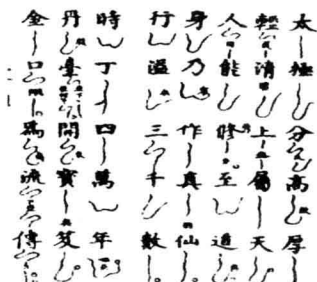 太極分高厚
輕清上屬天
人能脩至道
身乃作真仙
行溢三千數
時丁四萬年
丹臺開寶芨
金口爲流傳